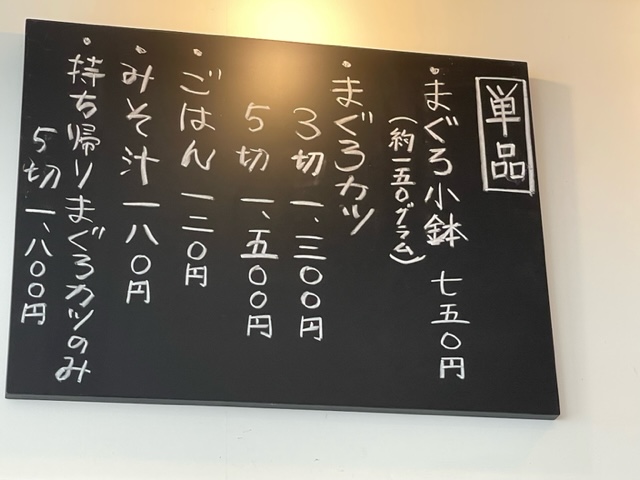 単品
・まぐろ小鉢 七五〇円
(約一五〇グラム)
・まぐろカツ
3切 一、三〇〇円
5切 一、五〇〇円
・ごはん 一二〇円
・みそ汁 一八〇円
・持ち帰りまぐろカツのみ
5切 一、八〇〇円